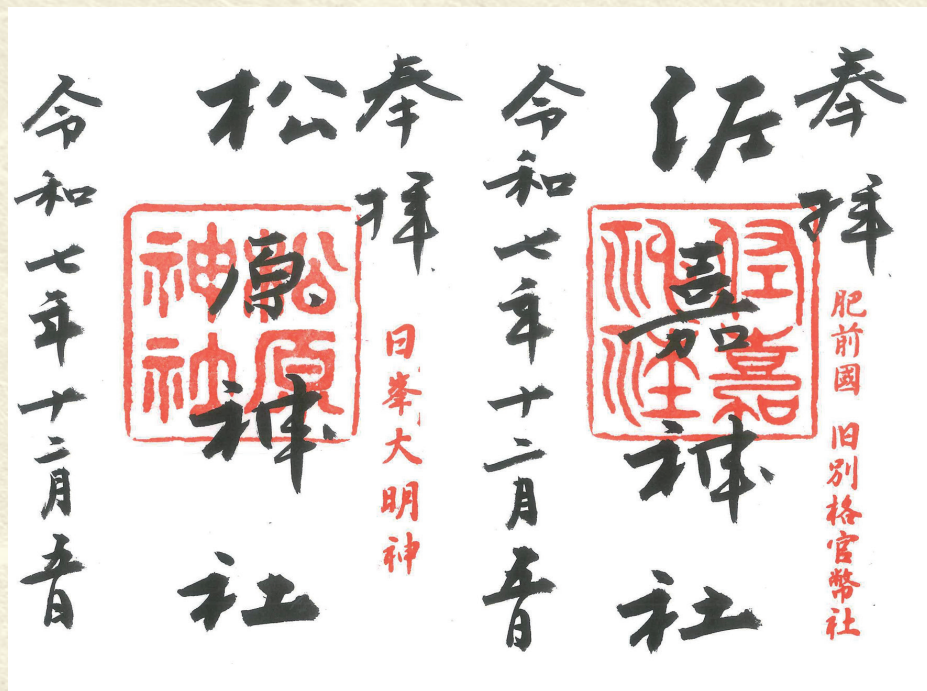 奉拝
肥前國 旧別格官幣社
佐嘉神社
佐嘉神社
令和七年十二月五日
奉拝
日峯大明神
松原神社
松原神社
令和七年十二月五日